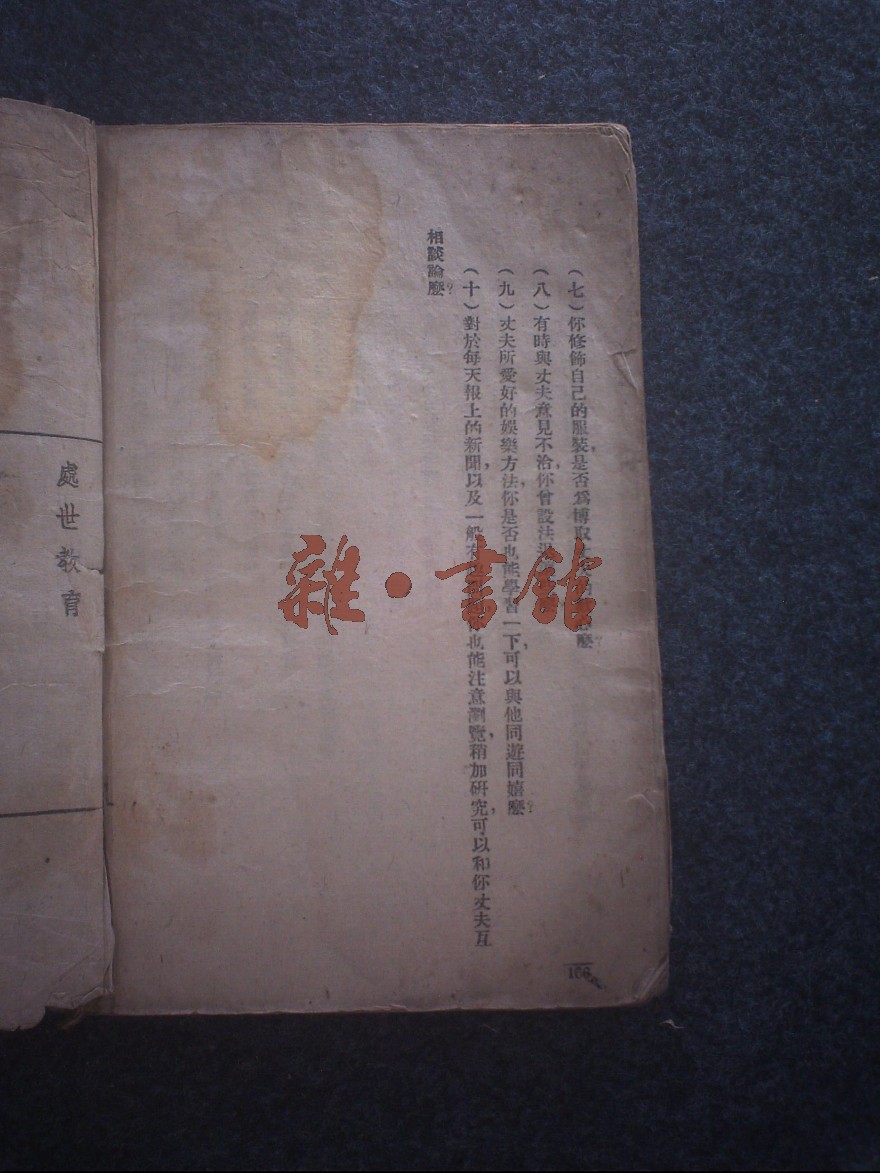 (七)你修飾自己的服裝,是否爲博取
麽?
(八)有時與丈夫意見不洽,你曾設法
(九)丈夫所愛好的娛樂方法,你是否也能學習一下,可以與他同遊同嬉麽?
(十)對於每天報上的新聞,以及一般
也能注意瀏覽,稍加研究,可以和你丈夫互
相談論麽?
166
處世教育
雜·書館